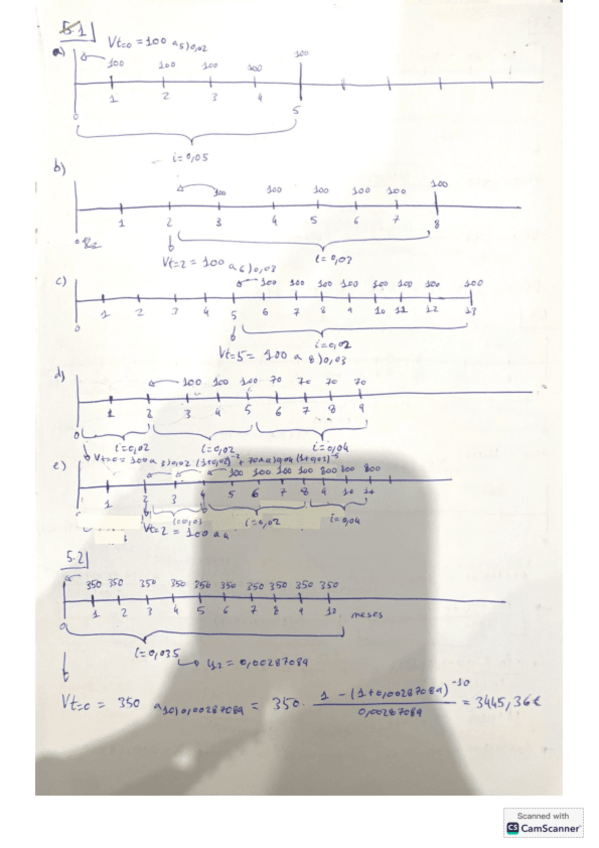 5.1
a) Vt=0 = 100 a5)0,02
100 100 100 100 100
0 1 2 3 4 5
i=0,05
b)
100 100 100 100 100 100
0 1 2 3 4 5 6 7 8
i=0,03
Vt=2 = 100 a6)0,03
c)
100 100 100 100 100 100 100 100
0 1 2 3 4 5 6 7 8 9 10 11 12 13
i=0,02
Vt=5 = 100 a 8)0,03
d)
100 100 100 70 70 70 70
0 1 2 3 4 5 6 7 8 9
i=0,02 i=0,02 i=0,04
Vt=0 = 100a 3)0,02 (1+0,02)^-2 + 70a4)0,04 (1+0,02)^-5
e)
100 100 100 100 800 800 800
1 2 3 4 5 6 7 8 9 10
i=0,02 i=0,04
Vt=2 = 100 a4
5.2
350 350 350 350 350 350 350 350 350 350
0 1 2 3 4 5 6 7 8 9 10 meses
i=0,035
→ i12 = 0,0028709
Vt=0 = 350 a10)0,00287089 = 350 · 1 - (1+0,00287089)^-10 / 0,00287089 = 3445,36€
Scanned with
CS CamScanner